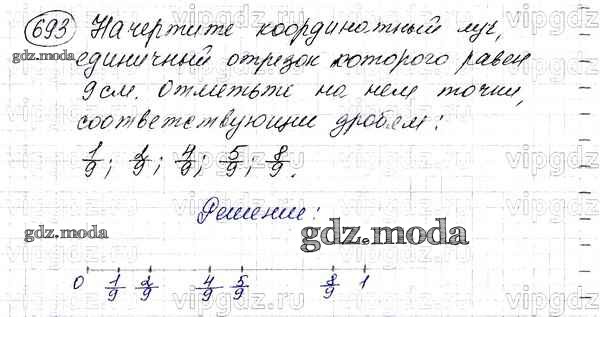 693 Начертите координатный луч,
единичный отрезок которого равен
9 см. Отметьте на нем точки,
соответствующие дробям:
1/9; 2/9; 4/9; 5/9; 8/9.
Решение:
0 1/9 2/9 4/9 5/9 8/9 1
gdz.moda
gdz.moda
gdz.moda
vipgdz.com